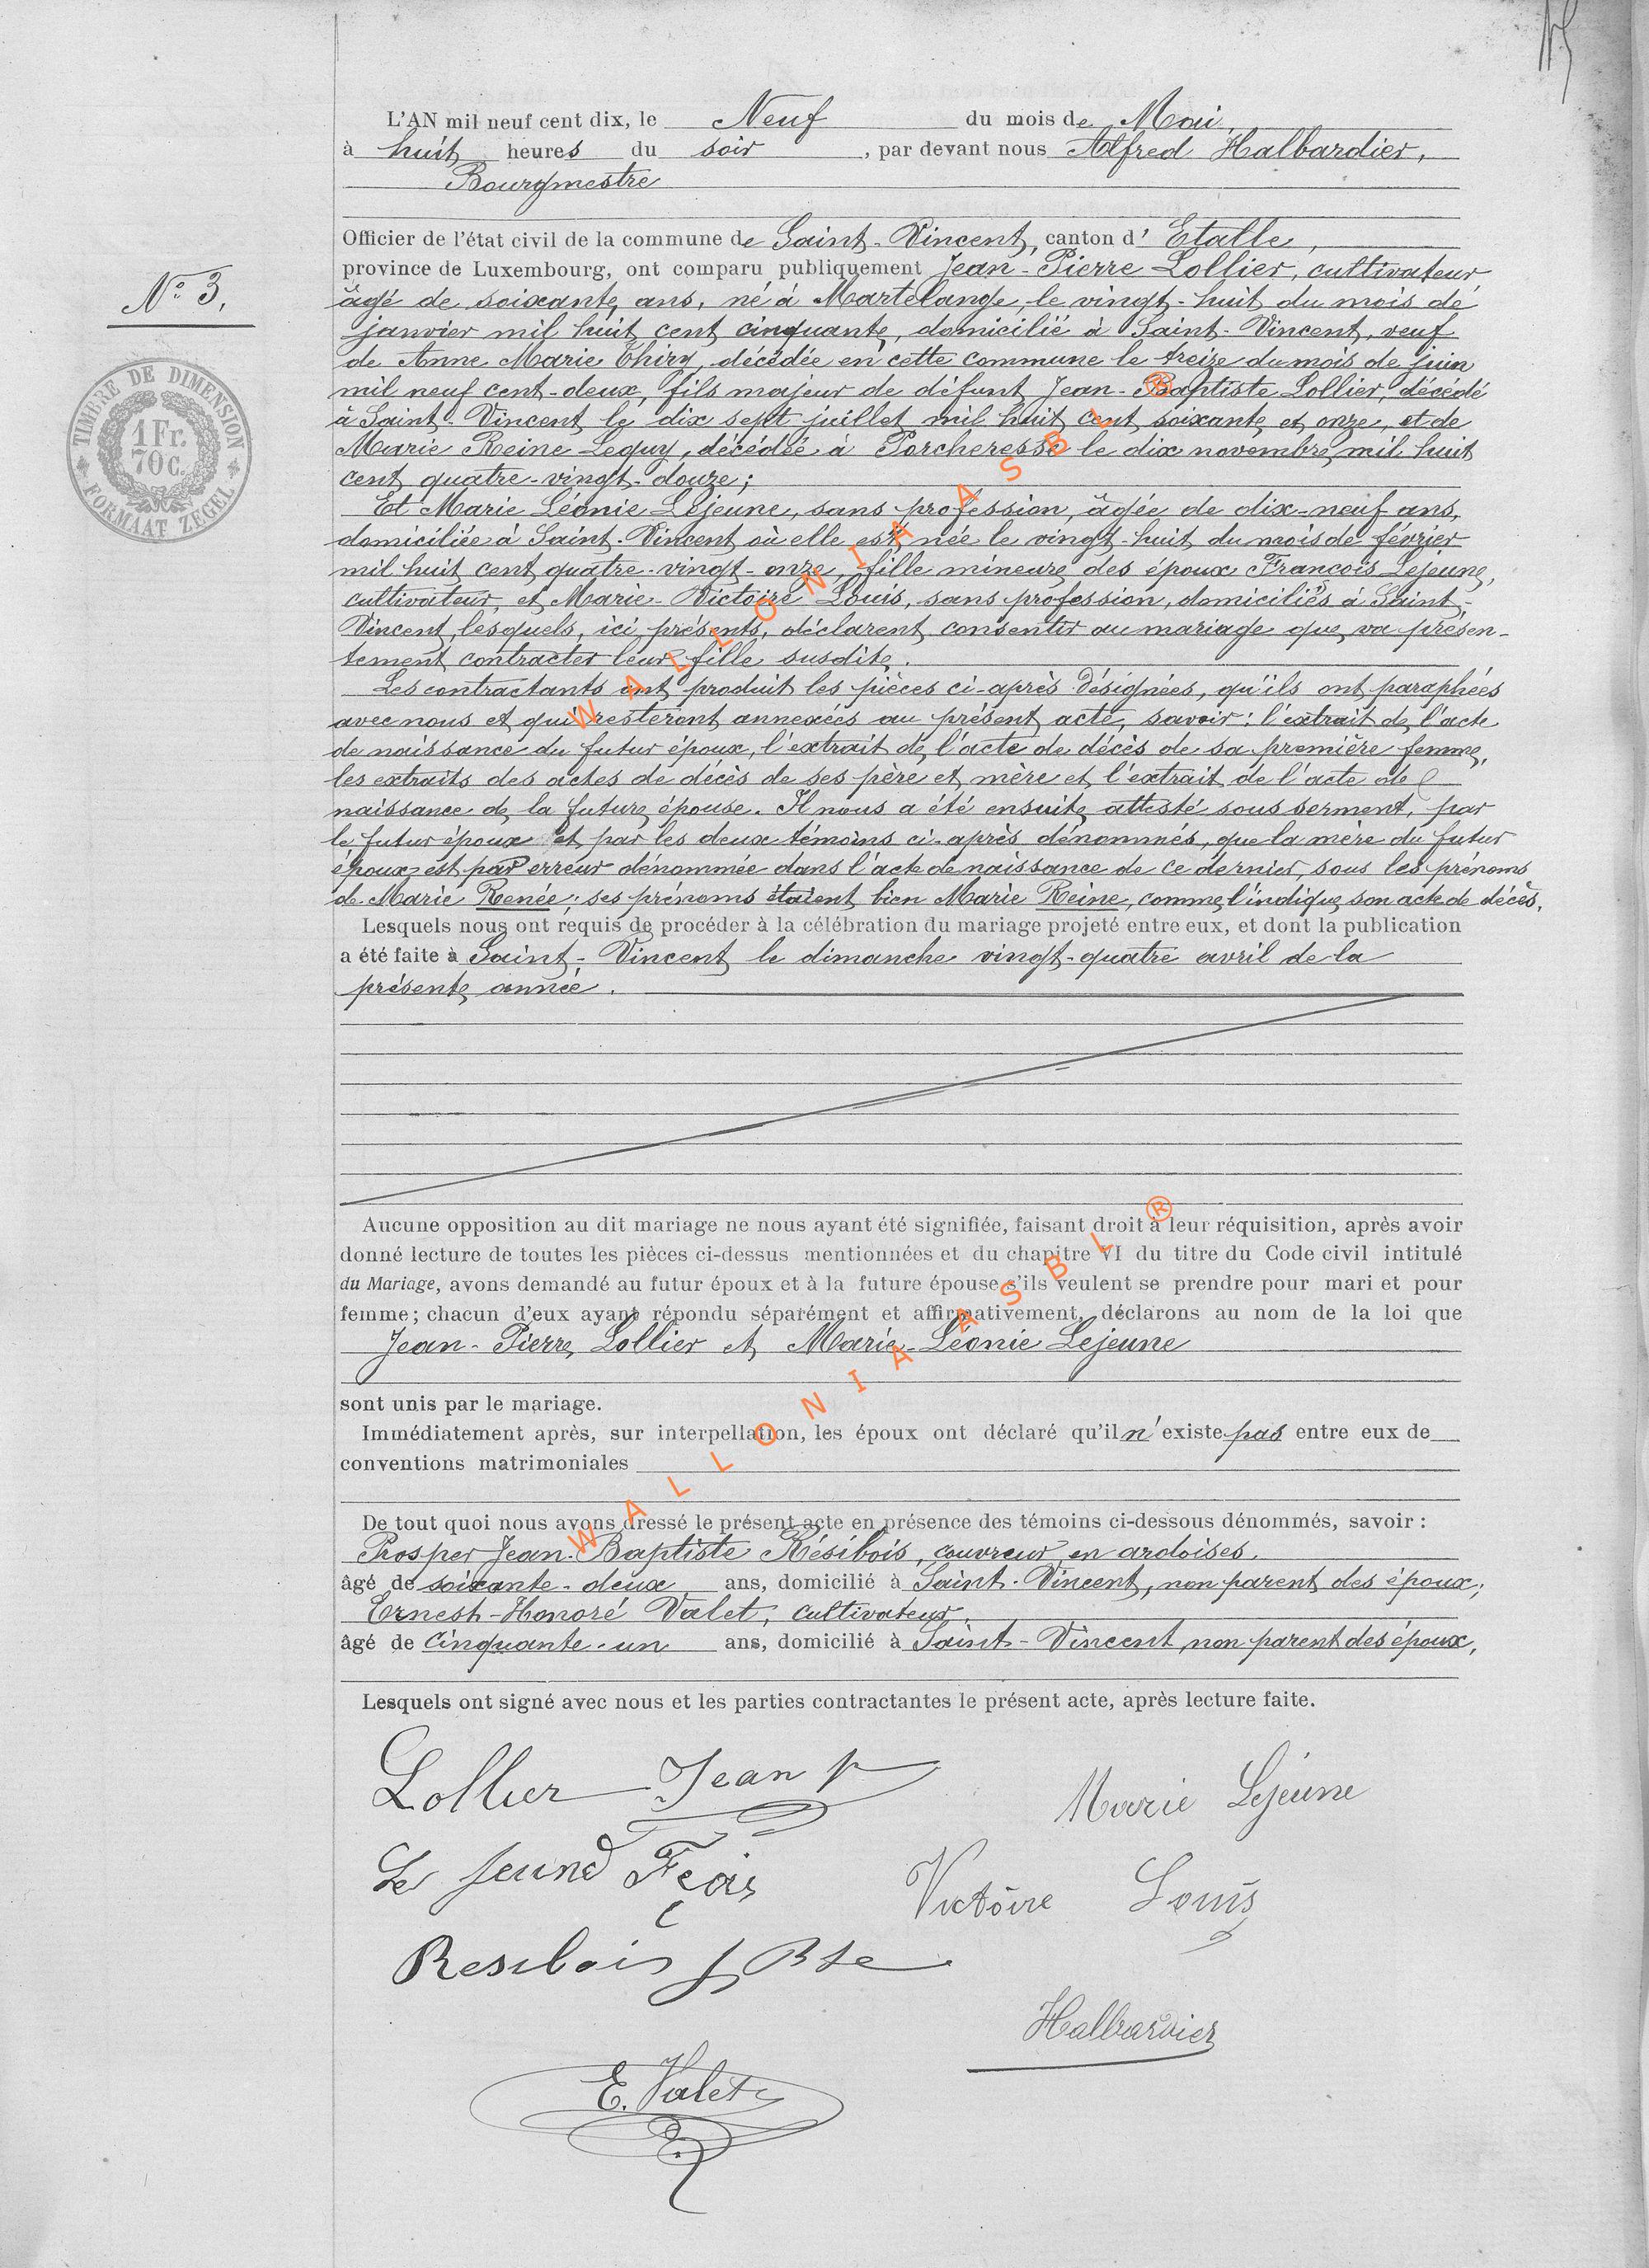 L'AN mil neuf cent dix, le Neuf du mois de Mai,
à huit heures du soir, par devant nous Alfred Halbardier,
Bourgmestre
Officier de l'état civil de la commune de Saint-Vincent, canton d' Etalle,
province de Luxembourg, ont comparu publiquement Jean-Pierre Lollier, cultivateur
N° 3.
âgé de soixante ans, né à Martelange, le vingt-huit du mois de
janvier mil huit cent cinquante, domicilié à Saint-Vincent, veuf
de Anne Marie Thiry, décédée en cette commune le treize du mois de juin
mil neuf cent-deux, fils majeur de défunt Jean-Baptiste Lollier, décédé
à Saint-Vincent le dix sept juillet mil huit cent soixante et onze, et de
Marie Reine Leguy, décédée à Porcheresse le dix novembre mil huit
cent quatre-vingt-douze;
TIMBRE DE DIMENSION
1 Fr.
70 c.
FORMAAT ZEGEL
Et Marie Léonie Lejeune, sans profession, âgée de dix-neuf ans,
domiciliée à Saint-Vincent où elle est née le vingt-huit du mois de février
mil huit cent quatre-vingt-onze, fille mineure des époux François Lejeune,
cultivateur, et Marie-Victoire Louis, sans profession, domiciliés à Saint-
Vincent, lesquels, ici présents, déclarent consentir au mariage que va présen-
tement contracter leur fille susdite.
Les contractants ont produit les pièces ci-après désignées, qu'ils ont paraphées
avec nous et qui resteront annexées au présent acte, savoir: l'extrait de l'acte
de naissance du futur époux, l'extrait de l'acte de décès de sa première femme,
les extraits des actes de décès de ses père et mère et l'extrait de l'acte de
naissance de la future épouse. Il nous a été ensuite attesté sous serment, par
le futur époux et par les deux témoins ci-après dénommés, que la mère du futur
époux est par erreur dénommée dans l'acte de naissance de ce dernier, sous les prénoms
de Marie Renée; ses prénoms étaient bien Marie Reine, comme l'indique son acte de décès.
Lesquels nous ont requis de procéder à la célébration du mariage projeté entre eux, et dont la publication
a été faite à Saint-Vincent le dimanche vingt-quatre avril de la
présente année.
Aucune opposition au dit mariage ne nous ayant été signifiée, faisant droit à leur réquisition, après avoir
donné lecture de toutes les pièces ci-dessus mentionnées et du chapitre VI du titre du Code civil intitulé
du Mariage, avons demandé au futur époux et à la future épouse s'ils veulent se prendre pour mari et pour
femme; chacun d'eux ayant répondu séparément et affirmativement, déclarons au nom de la loi que
Jean-Pierre Lollier et Marie-Léonie Lejeune
sont unis par le mariage.
Immédiatement après, sur interpellation, les époux ont déclaré qu'il n'existe pas entre eux de
conventions matrimoniales
De tout quoi nous avons dressé le présent acte en présence des témoins ci-dessous dénommés, savoir :
Prosper Jean-Baptiste Résibois, couvreur en ardoises,
âgé de soixante-deux ans, domicilié à Saint-Vincent, non parent des époux;
Ernest-Honoré Valet, cultivateur,
âgé de cinquante-un ans, domicilié à Saint-Vincent, non parent des époux,
Lesquels ont signé avec nous et les parties contractantes le présent acte, après lecture faite.
Lollier Jean P
Marie Lejeune
Le jeune Fçois
Victoire Louis
Resibois J Bte
Halbardier
E. Valet
WALLONIA ASBL ®
WALLONIA ASBL ®